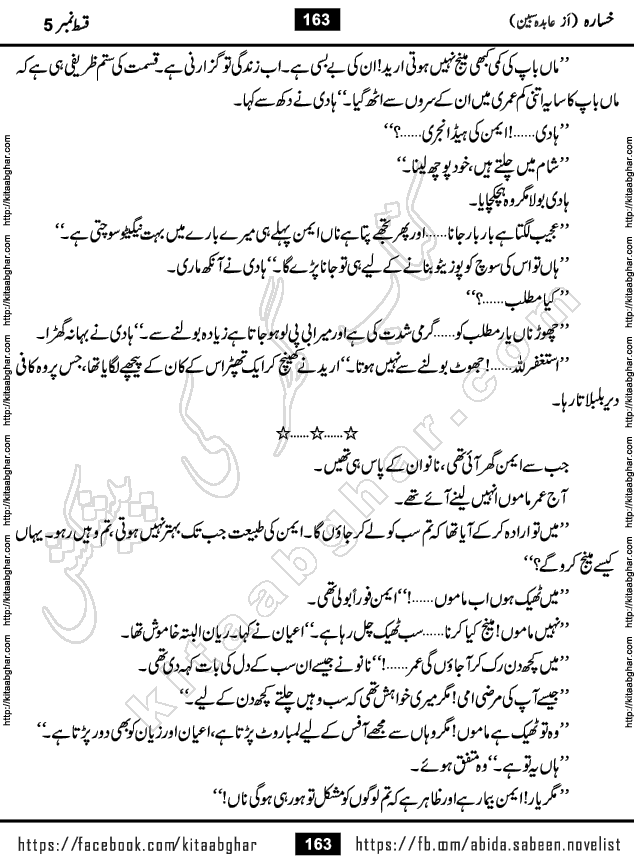 خسارہ (از عابدہ سبین)
163
قسط نمبر 5
’’ماں باپ کی کمی کبھی مینج نہیں ہوتی ارید! ان کی بے بسی ہے۔ اب زندگی تو گزارنی ہے۔ قسمت کی ستم ظریفی ہی ہے کہ
ماں باپ کا سایہ اتنی کم عمری میں ان کے سروں سے اٹھ گیا۔‘‘ ہادی نے دکھ سے کہا۔
’’ہادی......! ایمن کی ہیڈ انجری......؟‘‘
’’شام میں چلتے ہیں، خود پوچھ لینا۔‘‘
ہادی بولا مگر وہ ہچکچایا۔
’’عجیب لگتا ہے بار بار جانا......اور پھر تجھے پتا ہے ناں ایمن پہلے ہی میرے بارے میں بہت نیگیٹو سوچتی ہے۔‘‘
’’ہاں تو اس کی سوچ کو پوزیٹو بنانے کے لیے ہی تو جانا پڑے گا۔‘‘ ہادی نے آنکھ ماری۔
’’کیا مطلب......؟‘‘
’’چھوڑ ناں یار مطلب کو......گرمی شدت کی ہے اور میرا بی پی لو ہو جاتا ہے زیادہ بولنے سے۔‘‘ ہادی نے بہانہ گھڑا۔
’’استغفر للہ......! جھوٹ بولنے سے نہیں ہوتا۔‘‘ ارید نے کھینچ کر ایک تھپڑ اس کے کان کے پیچھے لگایا تھا، جس پر وہ کافی
دیر بلبلاتا رہا۔
☆......☆......☆
جب سے ایمن گھر آئی تھی، نانو ان کے پاس ہی تھیں۔
آج عمر ماموں انہیں لینے آئے تھے۔
’’میں تو ارادہ کر کے آیا تھا کہ تم سب کو لے کر جاؤں گا۔ ایمن کی طبیعت جب تک بہتر نہیں ہوتی، تم وہیں رہو۔ یہاں
کیسے مینج کرو گے؟‘‘
’’میں ٹھیک ہوں اب ماموں......!‘‘ ایمن فوراً بولی تھی۔
’’نہیں ماموں! مینج کیا کرنا......سب ٹھیک چل رہا ہے۔‘‘ اعیان نے کہا۔ زیان البتہ خاموش تھا۔
’’میں کچھ دن رک کر آ جاؤں گی عمر......!‘‘ نانو نے جیسے ان سب کے دل کی بات کہہ دی تھی۔
’’جیسے آپ کی مرضی امی! مگر میری خواہش تھی کہ سب وہیں چلتے کچھ دن کے لیے۔‘‘
’’وہ تو ٹھیک ہے ماموں! مگر وہاں سے مجھے آفس کے لیے لمبا روٹ پڑتا ہے، اعیان اور زیان کو بھی دور پڑتا ہے۔‘‘
’’ہاں یہ تو ہے۔‘‘ وہ متفق ہوئے۔
’’مگر یار! ایمن بیمار ہے اور ظاہر ہے کہ تم لوگوں کو مشکل تو ہو رہی ہو گی ناں!‘‘
کتاب گھر کی پیشکش
kitaabghar.com
http://kitaabghar.com http://kitaabghar.com http://kitaabghar.com http://kitaabghar.com http://kitaabghar.com http://kitaabghar.com
http://kitaabghar.com http://kitaabghar.com http://kitaabghar.com http://kitaabghar.com http://kitaabghar.com http://kitaabghar.com
https://facebook.com/kitaabghar
163
https://fb.com/abida.sabeen.novelist